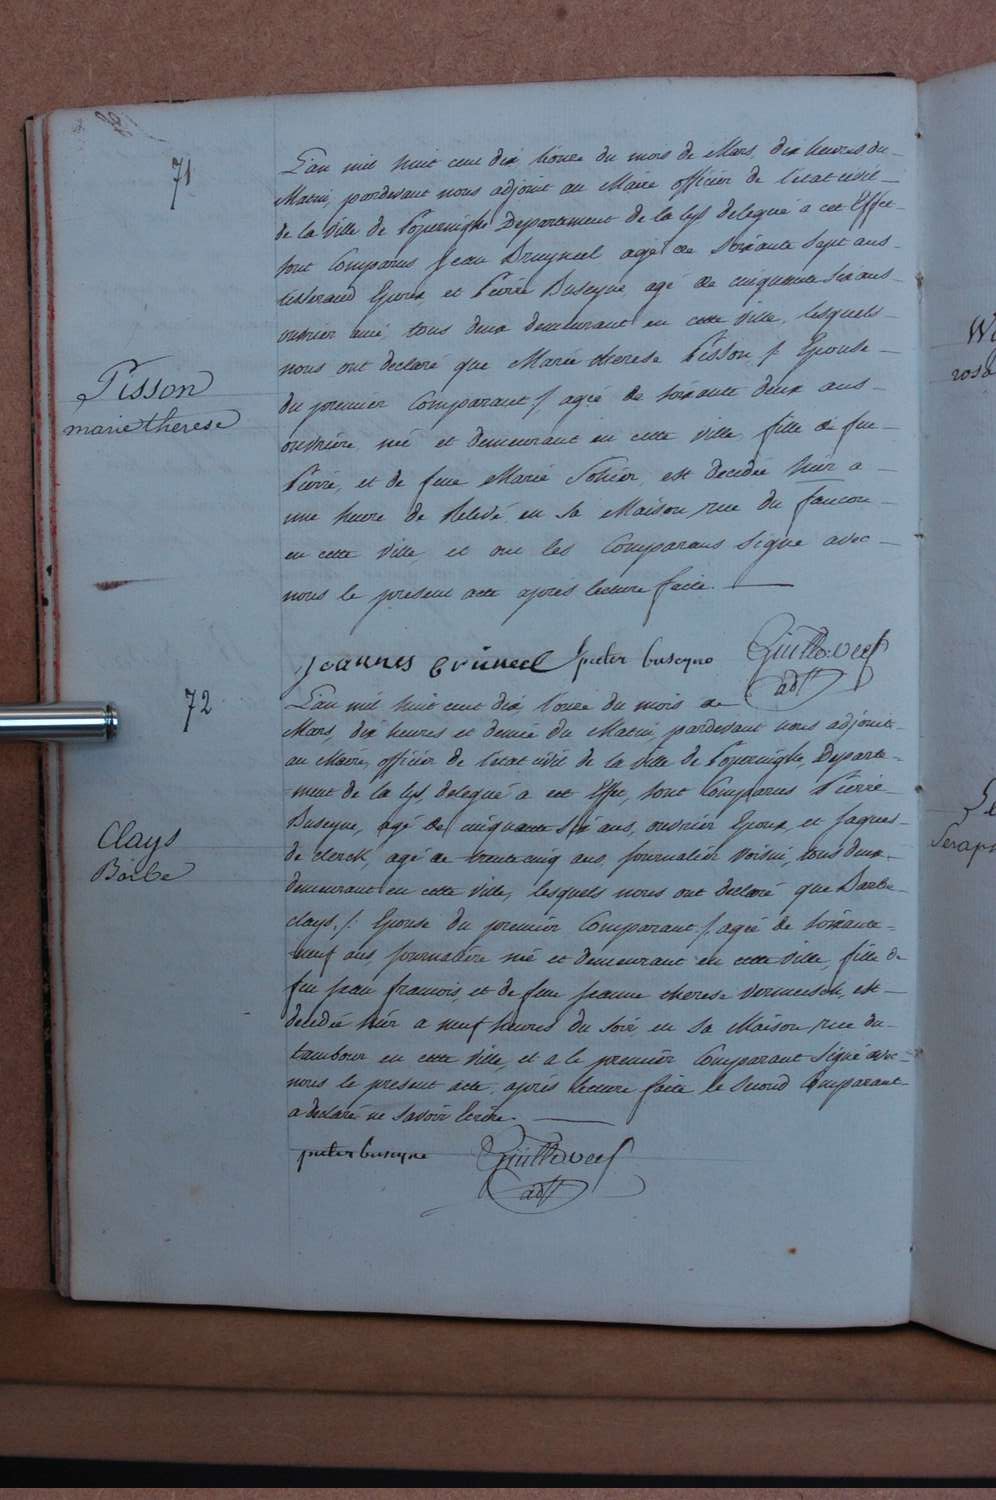 71
L'an mil huit cent dix l'onze du mois de Mars, dix heures du
Matin, pardevant nous adjoint au Maire officier de l'etat civil
de la Ville de Poperinghe Departement de la lys delegué a cet Effet
sont Comparus Jean Bruyneel agé de soixante sept ans
tisserand Epoux et Pierre Buseyne, agé de cinquante six ans
ouvrier ami, tous deux demeurant en cette ville, lesquels
nous ont declaré que Marie therese Pisson /: Epouse
Pisson
marie therese
du premier Comparant /: agée de soixante deux ans
ouvrière, née et demeurant en cette ville, fille de feu
Pierre, et de feue Marie Sohier, est decedée hier a
une heure de Relevé, en sa Maison rue du faucon
en cette ville, et ont les Comparans signé avec
nous le present acte après lecture faite.
Joannes Brúneel pieter buseyne
adjt
72
L'an mil huit cent dix, l'onze du mois de
Mars, dix heures et demie du Matin, pardevant nous adjoint
au Maire, officier de l'etat civil de la ville de Poperinghe, Departe-
ment de la lys, delegué a cet Effet, sont Comparus Pierre
Buseyne, agé de cinquante six ans, ouvrier Epoux, et Jaques
Clays
Barbe
de clerck, agé de trente cinq ans, Journalier Voisin, tous deux
demeurant en cette ville, lesquels nous ont declaré que Barbe
clays, /: Epouse du premier Comparant /: agée de soixante
neuf ans Journalière née et demeurant en cette ville, fille de
feu Jean francois, et de feue Jeanne therese Vermersch, est
decedée hier a neuf heures du soir en sa Maison rue du
tambour en cette ville, et a le premier Comparant signé avec
nous le present acte, après lecture faite le second Comparant
a declaré ne savoir Ecrire.
pieter buseyne
adjt
rosa
Seraph